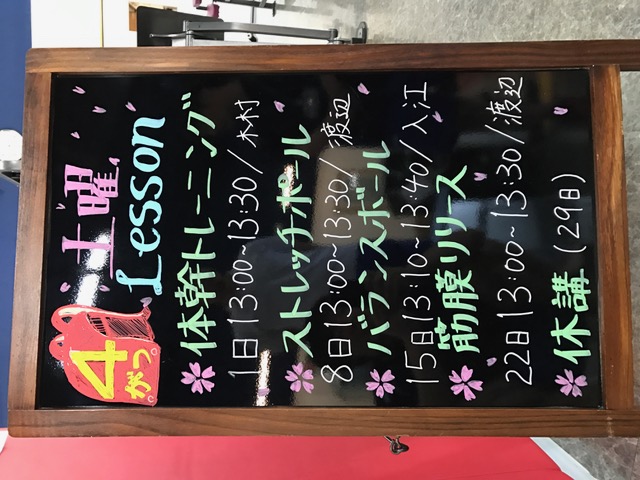 4がつ。
土曜
Lesson
体幹トレーニング
1日13:00~13:30/木村
ストレッチポール
8日13:00~13:30/渡辺
バランスボール
15日13:10~13:40/入江
筋膜リリース
22日13:00~13:30/渡辺
休講(29日)